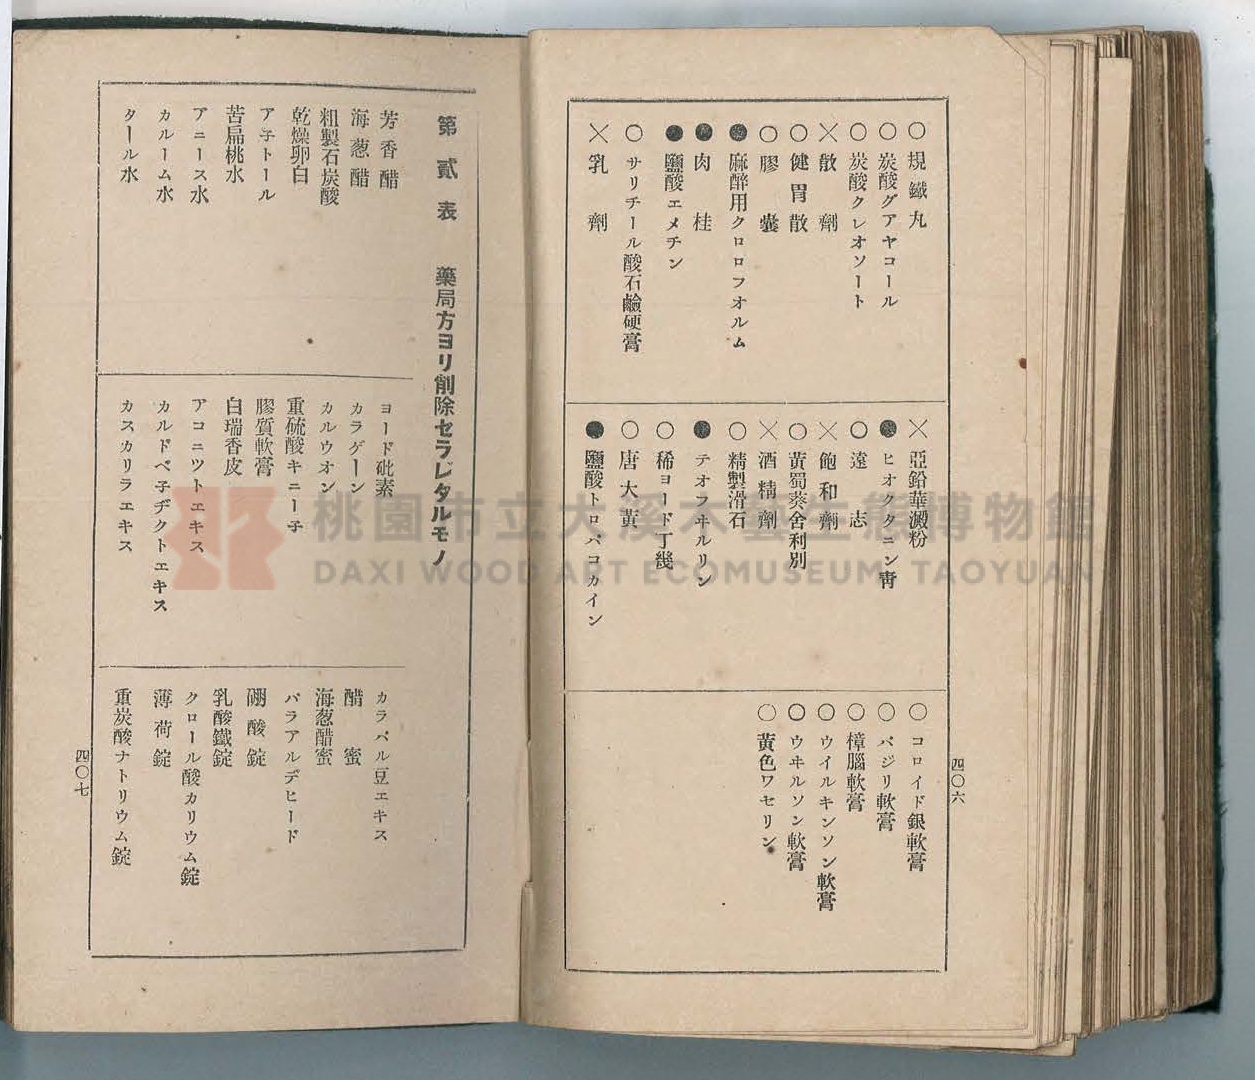 〇規鐵丸
〇炭酸グアヤコール
〇炭酸クレオソート
×散劑
〇健胃散
〇膠囊
●麻醉用クロロフオルム
●肉桂
●鹽酸エメチン
〇サリチール酸石鹼硬膏
×乳劑
×亞鉛華澱粉
●ヒオクタニン靑
〇遠志
×飽和劑
〇黃蜀葵舍利別
×酒精劑
〇精製滑石
●テオフヰルリン
〇稀ヨード丁幾
〇唐大黃
●鹽酸トロパコカイン
〇コロイド銀軟膏
〇バジリ軟膏
〇樟腦軟膏
〇ウイルキンソン軟膏
〇ウヰルソン軟膏
〇黃色ワセリン
四〇六
第貳表 藥局方ヨリ削除セラレタルモノ
芳香醋
海葱醋
粗製石炭酸
乾燥卵白
ア子トール
苦扁桃水
アニース水
カルーム水
タール水
ヨード砒素
カラゲーン
カルウオン
重硫酸キニー子
膠質軟膏
白瑞香皮
アコニツトエキス
カルドベ子ヂクトエキス
カスカリラエキス
カラバル豆エキス
醋蜜
海葱醋蜜
パラアルデヒード
硼酸錠
乳酸鐵錠
クロール酸カリウム錠
薄荷錠
重炭酸ナトリウム錠
四〇七
桃園市立大溪木藝生態博物館
DAXI WOOD ART ECOMUSEUM, TAOYUAN